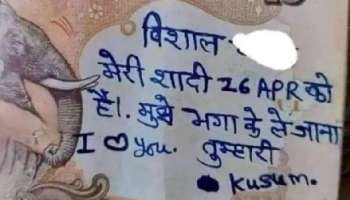 विशाल
मेरी शादी 26 APR को
है।. मुझे भगा के ले जाना
I ♡ you. तुम्हारी
kusum.